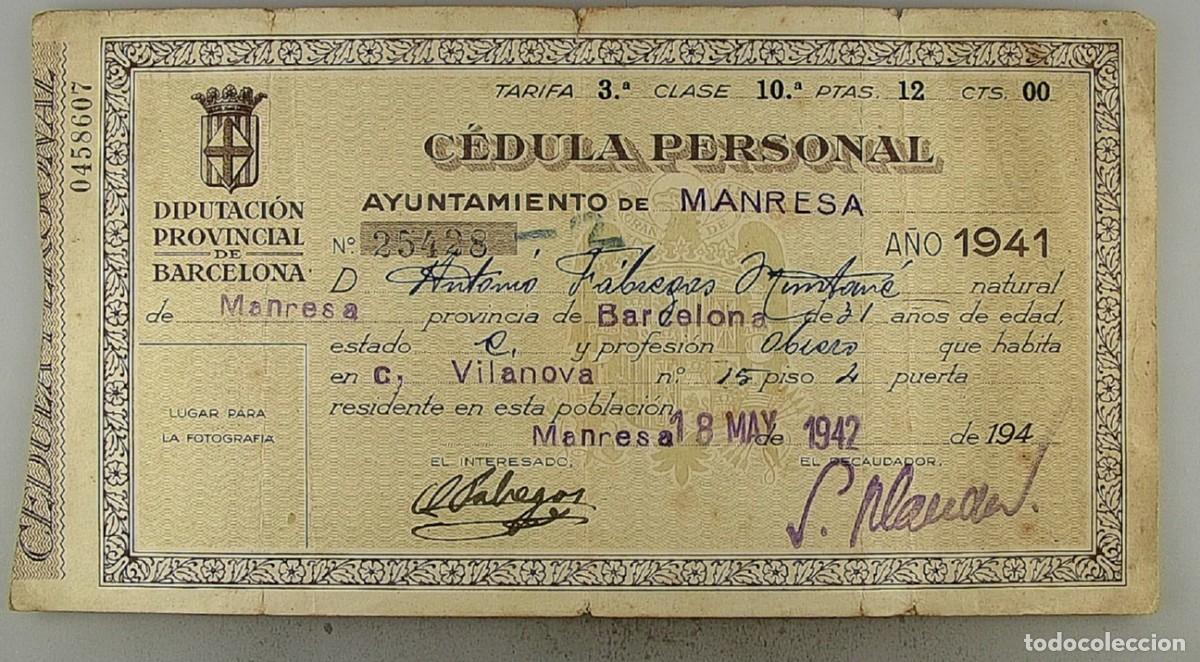 CÉDULA PERSONAL
0458607
TARIFA 3.ª CLASE 10.ª PTAS. 12 CTS. 00
CÉDULA PERSONAL
DIPUTACIÓN
PROVINCIAL
DE
BARCELONA
AYUNTAMIENTO DE MANRESA
Nº 25428 - 2 AÑO 1941
D Antonio Fábregas natural
de Manresa provincia de Barcelona de 31 años de edad,
estado C. y profesión obrero que habita
en C, Vilanova nº 15 piso 2 puerta
residente en esta población
Manresa 18 MAY de 1942 de 194
LUGAR PARA
LA FOTOGRAFIA
EL INTERESADO, EL RECAUDADOR,
Fabregas
todocoleccion